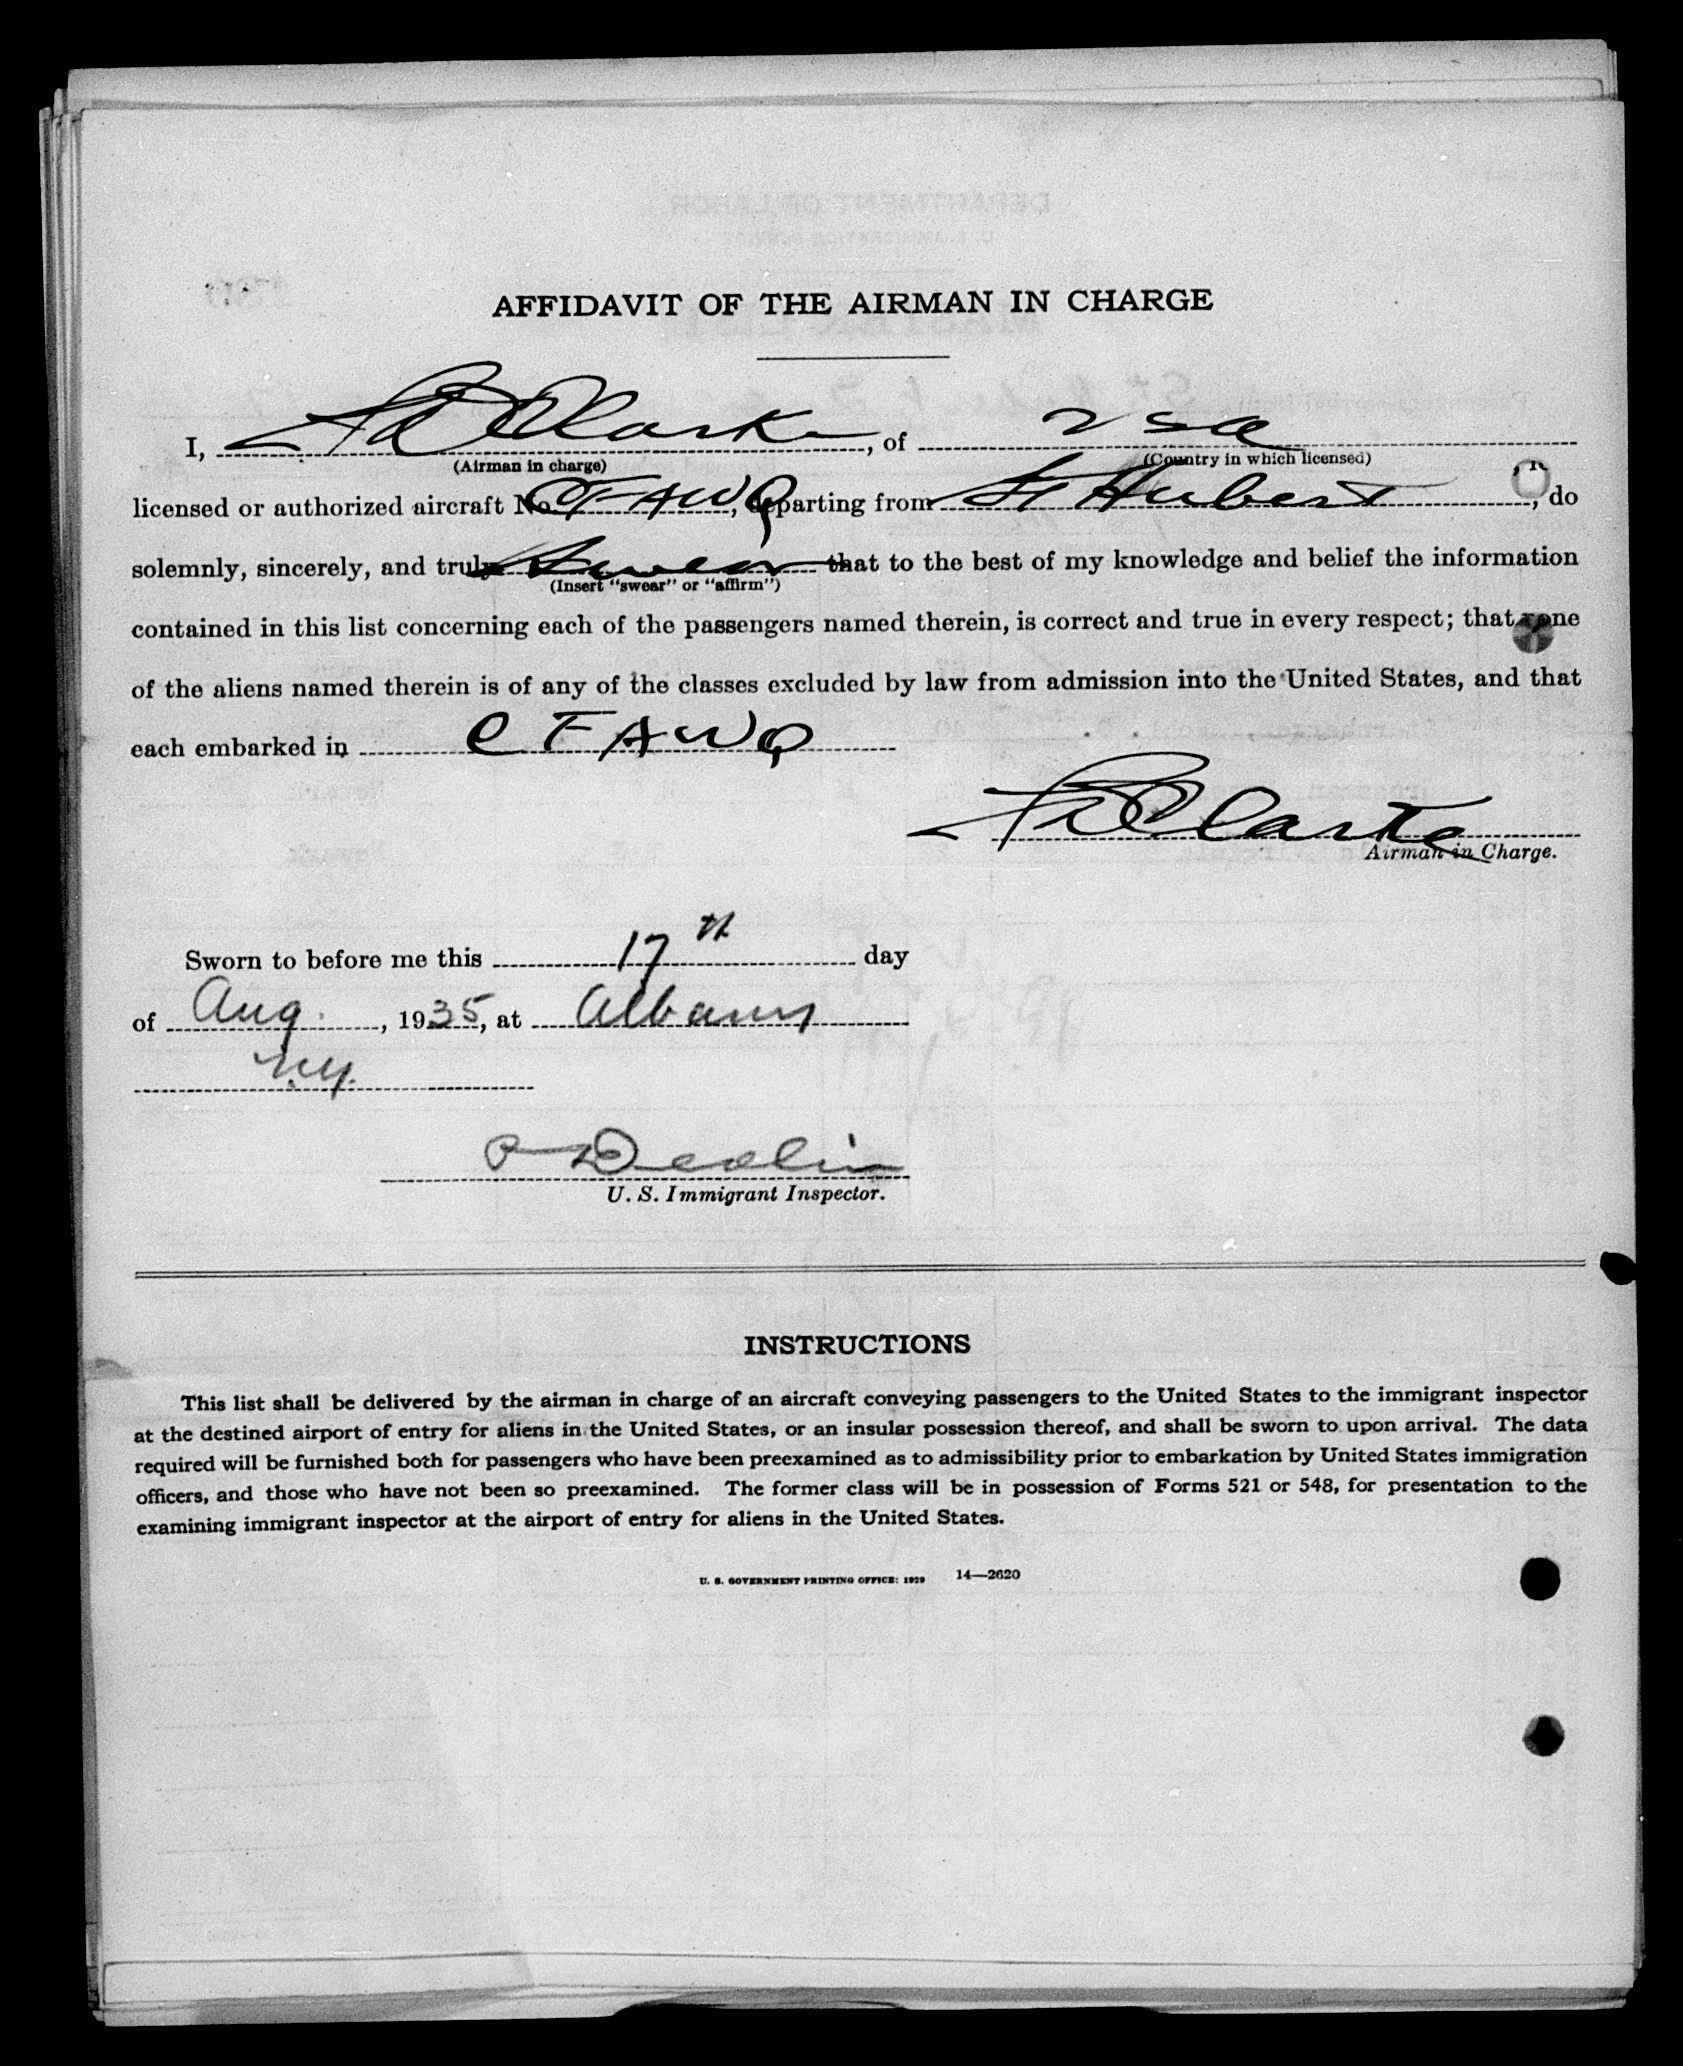 AFFIDAVIT OF THE AIRMAN IN CHARGE
I, Clarke, of USA
(Airman in charge) (Country in which licensed)
licensed or authorized aircraft No. CFAWQ, departing from St Hubert, do
solemnly, sincerely, and truly swear that to the best of my knowledge and belief the information
(Insert "swear" or "affirm")
contained in this list concerning each of the passengers named therein, is correct and true in every respect; that none
of the aliens named therein is of any of the classes excluded by law from admission into the United States, and that
each embarked in CFAWQ
Clarke
Airman in Charge.
Sworn to before me this 17th day
of Aug., 1935, at Albany
N.Y.
P Devlin
U. S. Immigrant Inspector.
INSTRUCTIONS
This list shall be delivered by the airman in charge of an aircraft conveying passengers to the United States to the immigrant inspector
at the destined airport of entry for aliens in the United States, or an insular possession thereof, and shall be sworn to upon arrival. The data
required will be furnished both for passengers who have been preexamined as to admissibility prior to embarkation by United States immigration
officers, and those who have not been so preexamined. The former class will be in possession of Forms 521 or 548, for presentation to the
examining immigrant inspector at the airport of entry for aliens in the United States.
U. S. GOVERNMENT PRINTING OFFICE: 1929 14—2620